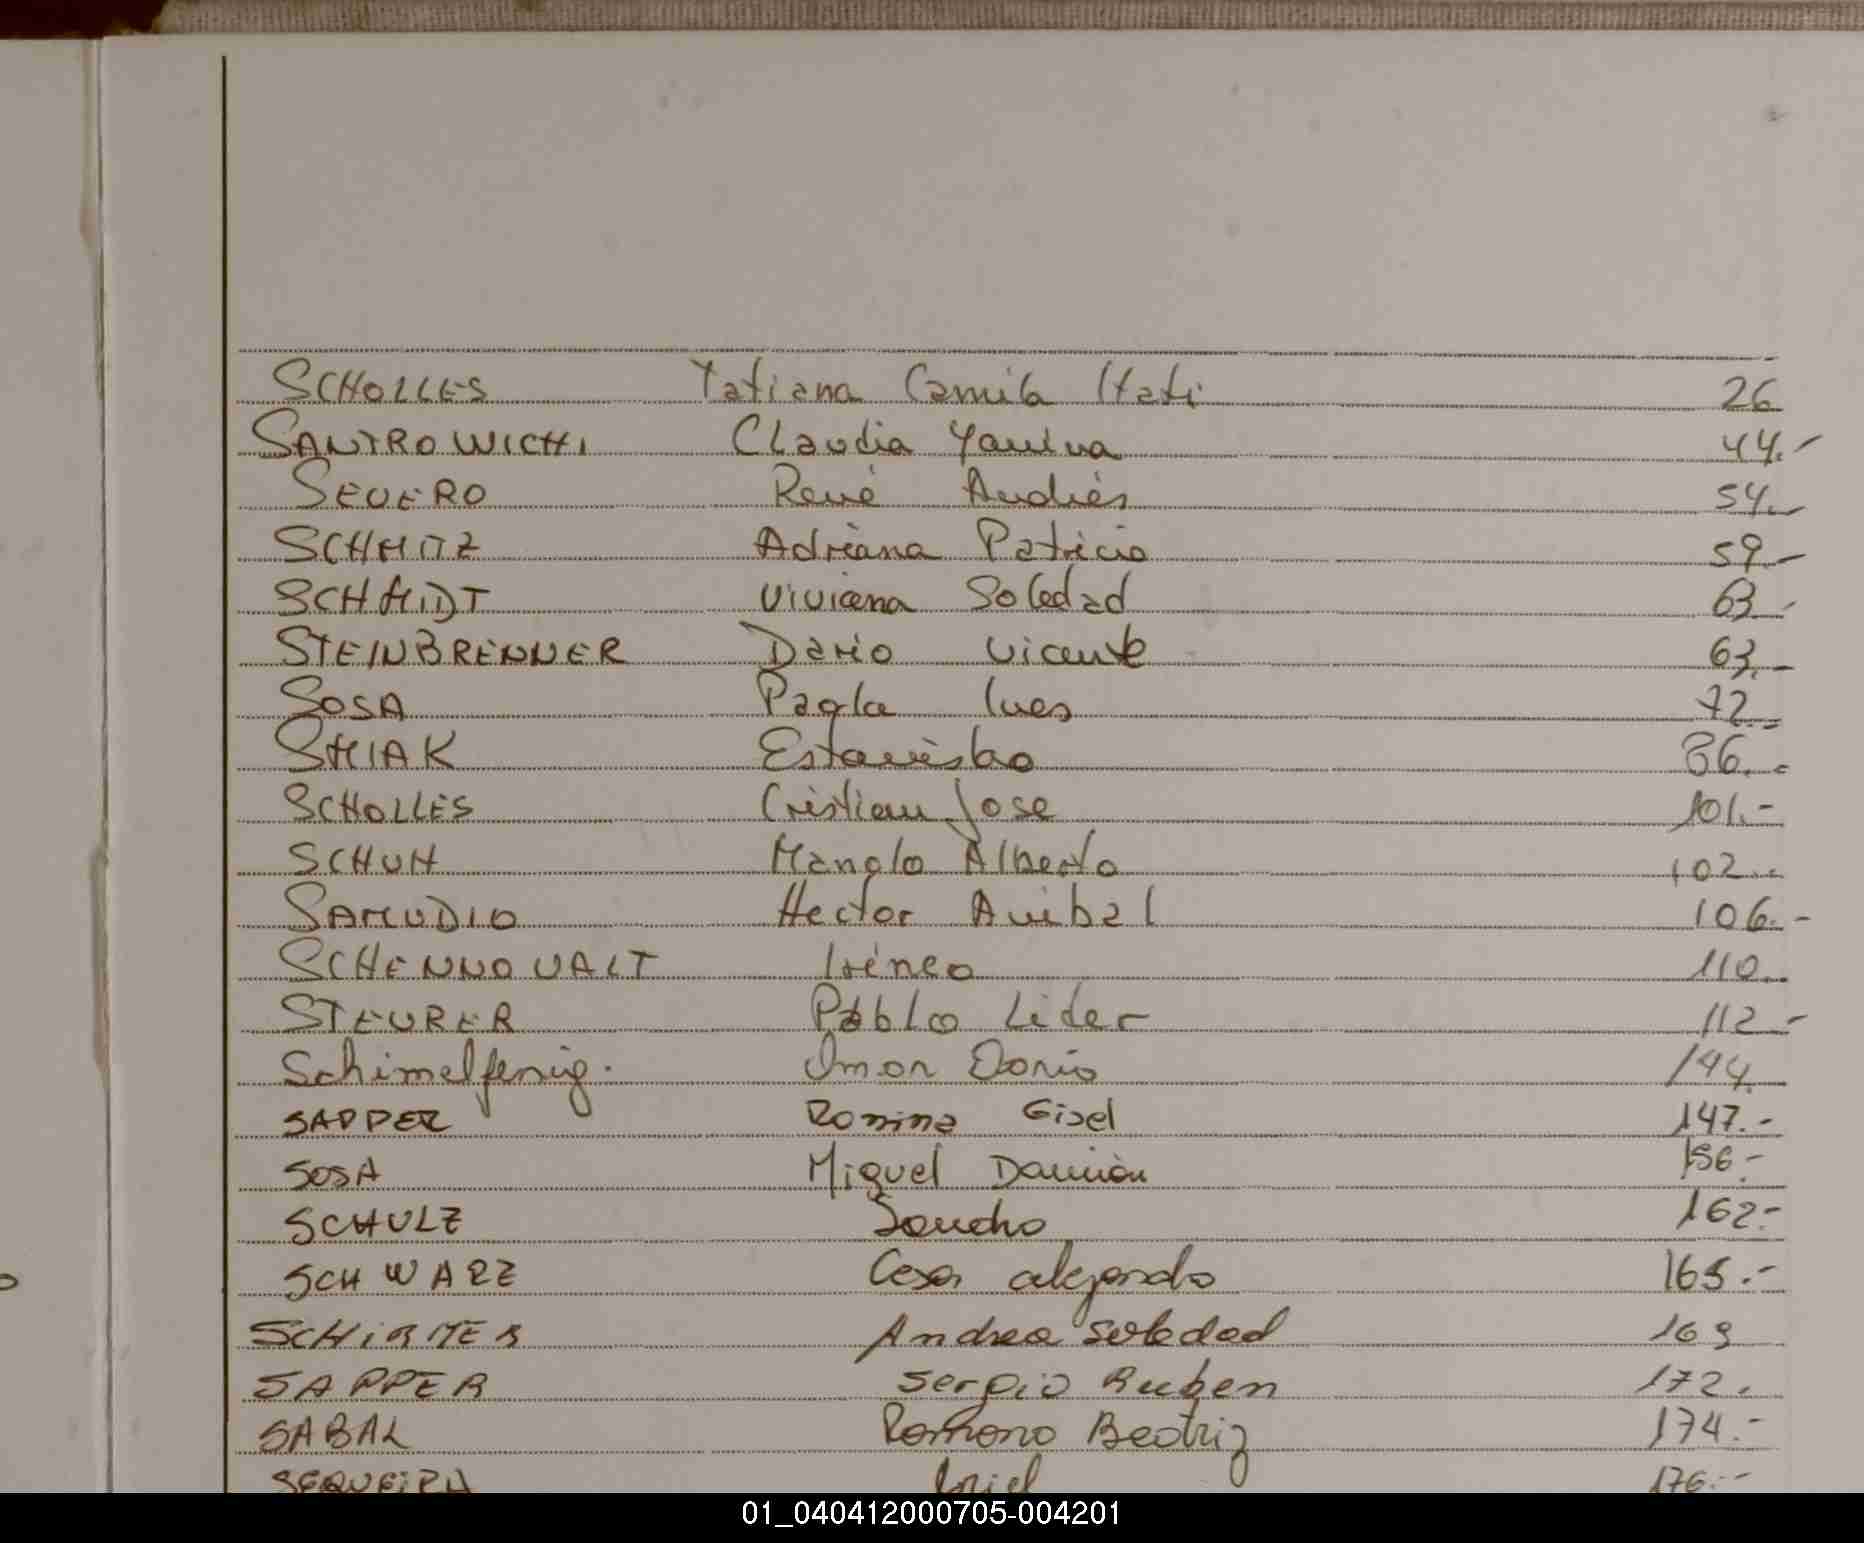 SCHOLLES Tatiana Camila Itati 26
SANTROWICHI Claudia Yanina 44.-
SEVERO René Andrés 54.-
SCHMITZ Adriana Patricia 59.-
SCHMIDT Viviana Soledad 63.-
STEINBRENNER Dario Vicente 63.-
SOSA Paola Ines 72.-
SMIAK Estanislao 86.-
SCHOLLES Cristian Jose 101.-
SCHUH Manolo Alberto 102.-
SAMUDIO Hector Anibal 106.-
SCHENNOVALT Iréneo 110.-
STEURER Pablo Lider 112.-
Schimelfenig. Omar Dario 144.
SAPPER Romina Gisel 147.-
SOSA Miguel Damián 156.-
SCHULZ Sandro 162.-
SCHWARZ Cesar alejandro 165.-
SCHIRMER Andrea Soledad 169
SAPPER Sergio Ruben 172.
SABAL Romona Beatriz 174.-
SEQUEIRA 176.-
01_040412000705-004201